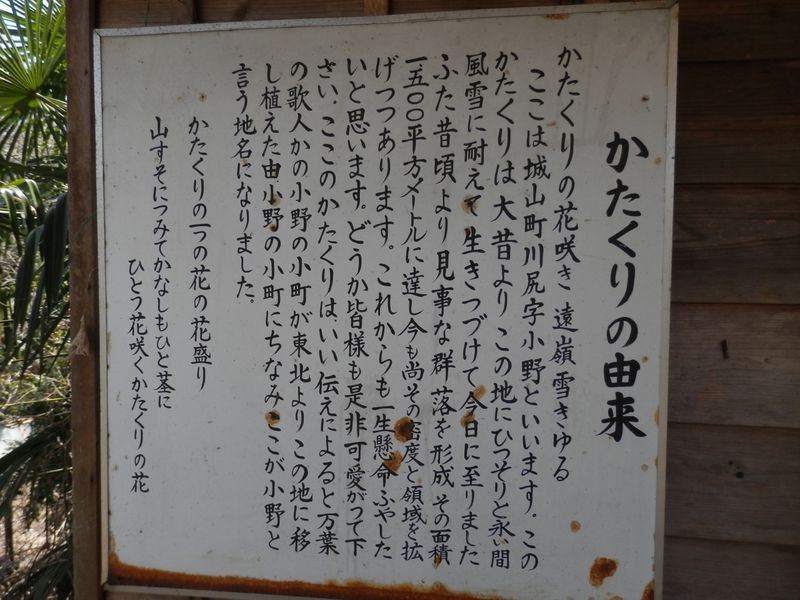 かたくりの由来
かたくりの花咲き 遠嶺雪きゆる
ここは城山町川尻字小野といいます。この
かたくりは大昔より この地にひっそりと永い間
風雪に耐えて 生きつづけて今日に至りました
ふた昔頃 より 見事な 群 落を 形成 その面積
一五〇〇平方メートルに達し今も尚その密度と領域を拡
げつつあります。これからも一生懸命ふやした
いと思います。どうか皆様も是非可愛がって下
さい。ここのかたくりはいい伝えによると万葉
の歌人かの小野の小町が東北よりこの地に移
し植えた由小野の小町にちなみここが小野と
言う地名になりました。
かたくりの一つの花の花盛り
山すそにつみてかなしもひと茎に
ひとう花咲くかたくりの花